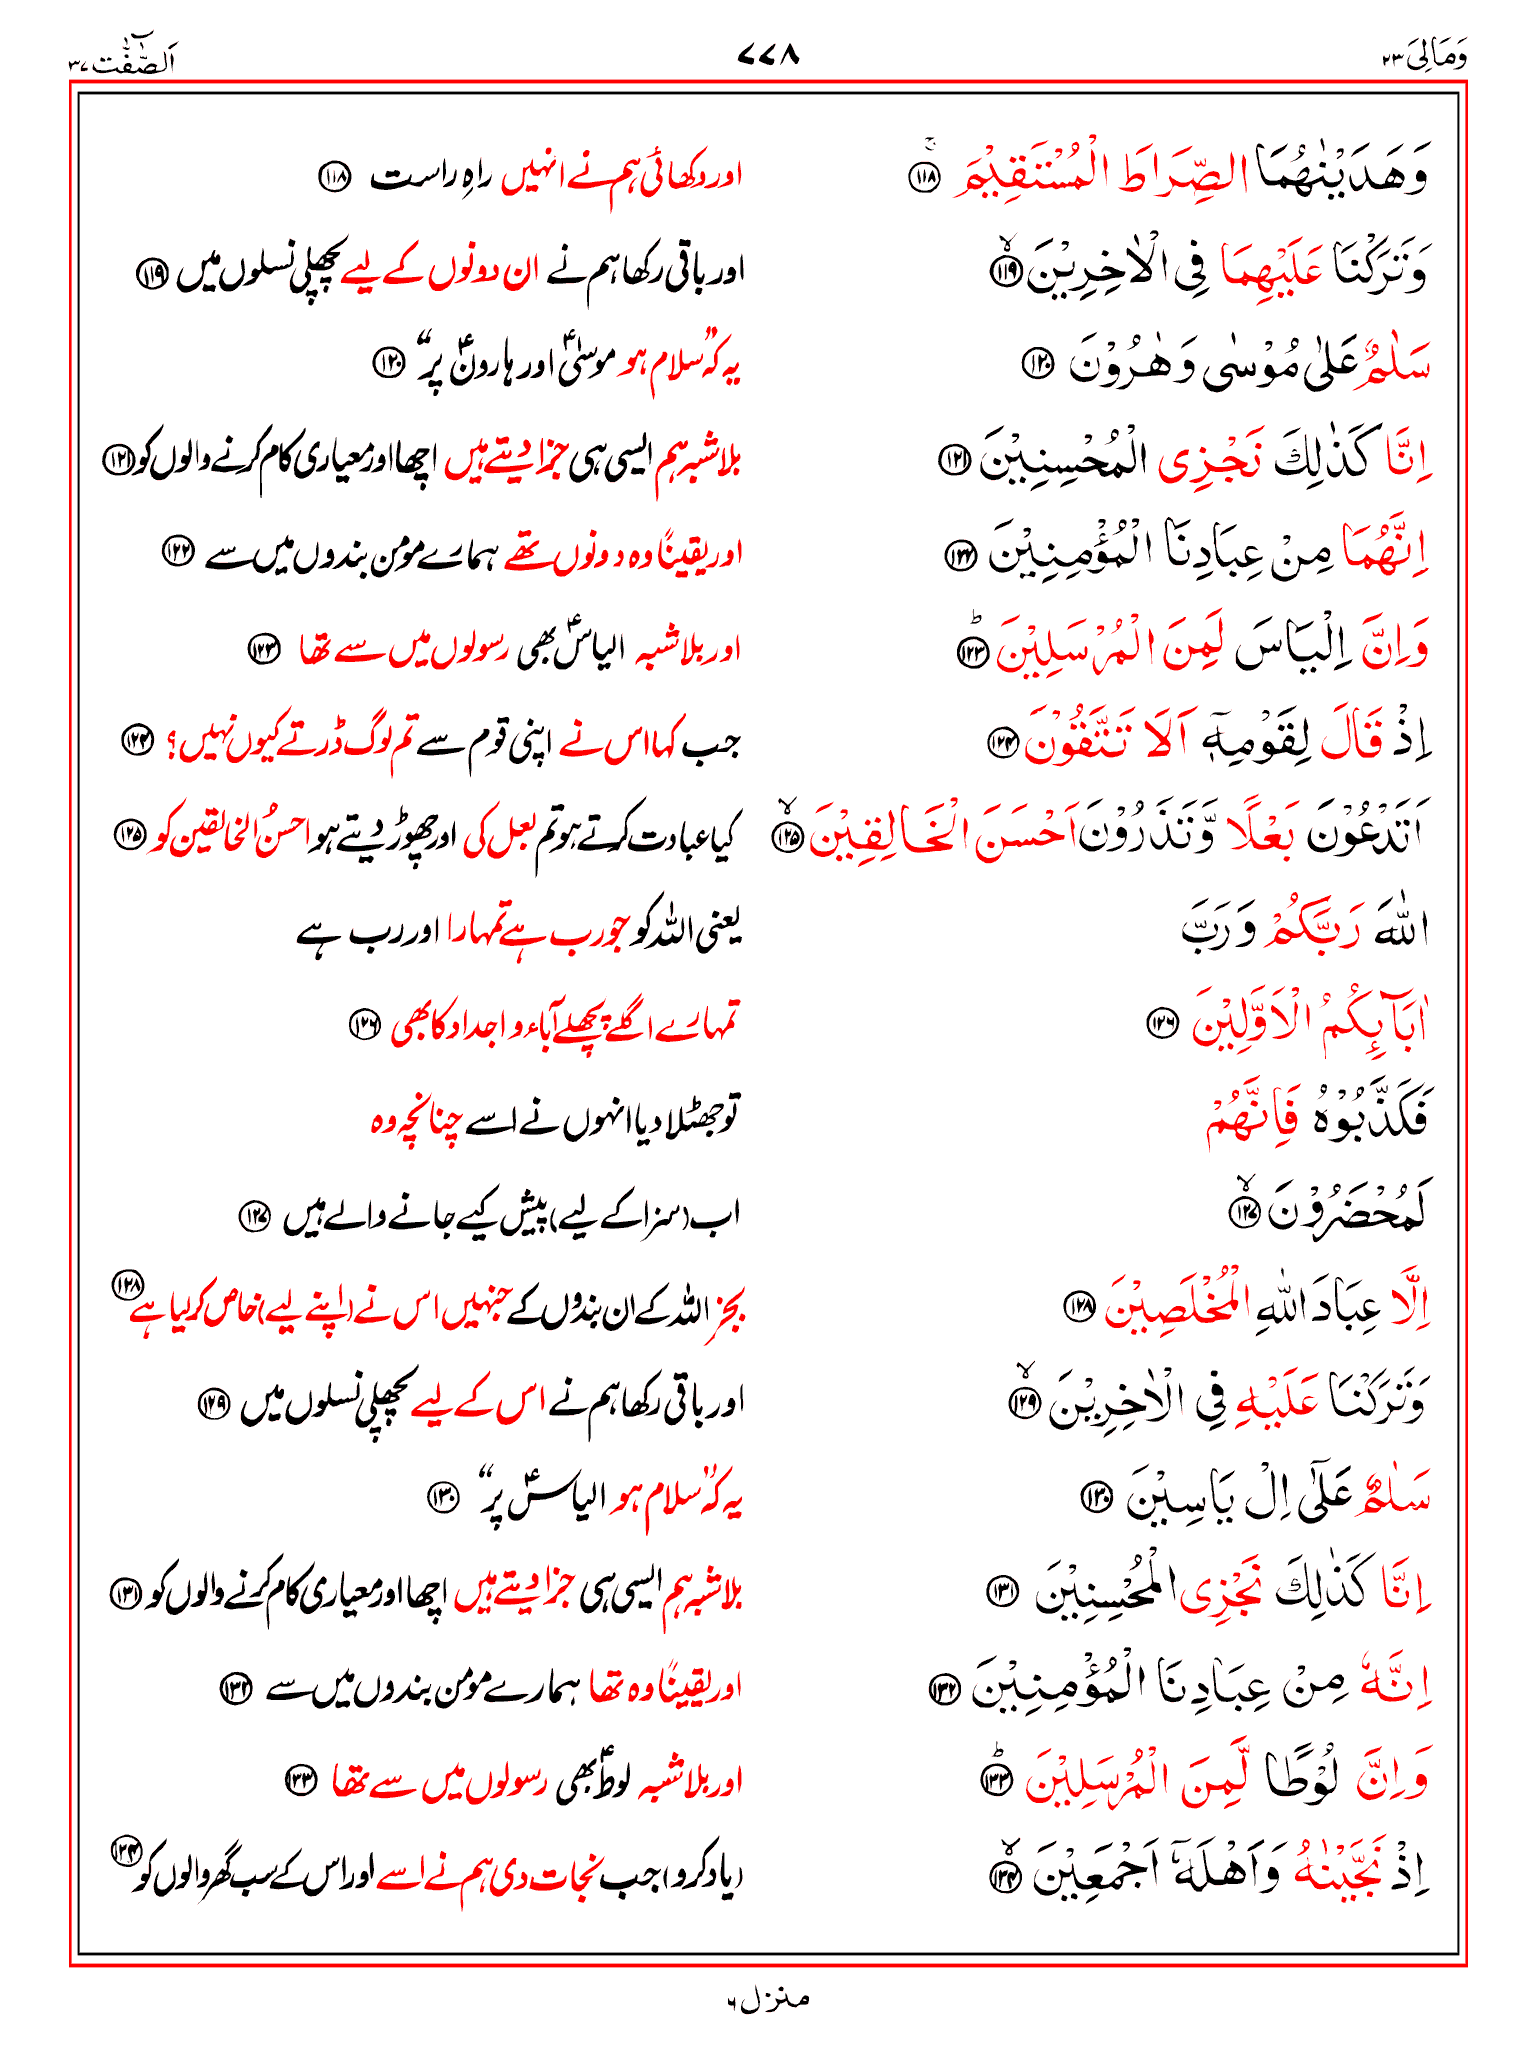 وَمَالِیَ ۲۳ ۷۷۸ اَلصّٰٓفّٰت ۳۷
وَهَدَیْنٰهُمَا الصِّرَاطَ الْمُسْتَقِیْمَ ۚ ﴿۱۱۸﴾ اور دکھائی ہم نے انہیں راہِ راست ﴿۱۱۸﴾
وَتَرَكْنَا عَلَیْهِمَا فِی الْاٰخِرِیْنَ ۙ ﴿۱۱۹﴾ اور باقی رکھا ہم نے ان دونوں کے لیے پچھلی نسلوں میں ﴿۱۱۹﴾
سَلٰمٌ عَلٰی مُوْسٰی وَهٰرُوْنَ ﴿۱۲۰﴾ یہ کہ ”سلام ہو موسیٰؑ اور ہارونؑ پر“ ﴿۱۲۰﴾
اِنَّا كَذٰلِكَ نَجْزِی الْمُحْسِنِیْنَ ﴿۱۲۱﴾ بلاشبہ ہم ایسی ہی جزا دیتے ہیں اچھا اور معیاری کام کرنے والوں کو ﴿۱۲۱﴾
اِنَّهُمَا مِنْ عِبَادِنَا الْمُؤْمِنِیْنَ ﴿۱۲۲﴾ اور یقیناً وہ دونوں تھے ہمارے مومن بندوں میں سے ﴿۱۲۲﴾
وَاِنَّ اِلْیَاسَ لَمِنَ الْمُرْسَلِیْنَ ؕ ﴿۱۲۳﴾ اور بلاشبہ الیاسؑ بھی رسولوں میں سے تھا ﴿۱۲۳﴾
اِذْ قَالَ لِقَوْمِهٖۤ اَلَا تَتَّقُوْنَ ﴿۱۲۴﴾ جب کہا اس نے اپنی قوم سے تم لوگ ڈرتے کیوں نہیں؟ ﴿۱۲۴﴾
اَتَدْعُوْنَ بَعْلًا وَّتَذَرُوْنَ اَحْسَنَ الْخَالِقِیْنَ ۙ ﴿۱۲۵﴾ کیا عبادت کرتے ہو تم بعل کی اور چھوڑ دیتے ہو احسنُ الخالقین کو ﴿۱۲۵﴾
اللّٰهَ رَبَّكُمْ وَرَبَّ یعنی اللہ کو جو رب ہے تمہارا اور رب ہے
اٰبَآىِٕكُمُ الْاَوَّلِیْنَ ﴿۱۲۶﴾ تمہارے اگلے پچھلے آباء و اجداد کا بھی ﴿۱۲۶﴾
فَكَذَّبُوْهُ فَاِنَّهُمْ تو جھٹلا دیا انہوں نے اسے چنانچہ وہ
لَمُحْضَرُوْنَ ۙ ﴿۱۲۷﴾ اب (سزا کے لیے) پیش کیے جانے والے ہیں ﴿۱۲۷﴾
اِلَّا عِبَادَ اللّٰهِ الْمُخْلَصِیْنَ ﴿۱۲۸﴾ بجز اللہ کے ان بندوں کے جنہیں اس نے (اپنے لیے) خاص کر لیا ہے ﴿۱۲۸﴾
وَتَرَكْنَا عَلَیْهِ فِی الْاٰخِرِیْنَ ۙ ﴿۱۲۹﴾ اور باقی رکھا ہم نے اس کے لیے پچھلی نسلوں میں ﴿۱۲۹﴾
سَلٰمٌ عَلٰۤی اِلْ یَاسِیْنَ ﴿۱۳۰﴾ یہ کہ ”سلام ہو الیاسؑ پر“ ﴿۱۳۰﴾
اِنَّا كَذٰلِكَ نَجْزِی الْمُحْسِنِیْنَ ﴿۱۳۱﴾ بلاشبہ ہم ایسی ہی جزا دیتے ہیں اچھا اور معیاری کام کرنے والوں کو ﴿۱۳۱﴾
اِنَّهٗ مِنْ عِبَادِنَا الْمُؤْمِنِیْنَ ﴿۱۳۲﴾ اور یقیناً وہ تھا ہمارے مومن بندوں میں سے ﴿۱۳۲﴾
وَاِنَّ لُوْطًا لَّمِنَ الْمُرْسَلِیْنَ ؕ ﴿۱۳۳﴾ اور بلاشبہ لوطؑ بھی رسولوں میں سے تھا ﴿۱۳۳﴾
اِذْ نَجَّیْنٰهُ وَاَهْلَهٗۤ اَجْمَعِیْنَ ۙ ﴿۱۳۴﴾ (یاد کرو) جب نجات دی ہم نے اسے اور اس کے سب گھر والوں کو ﴿۱۳۴﴾
منزل ۶